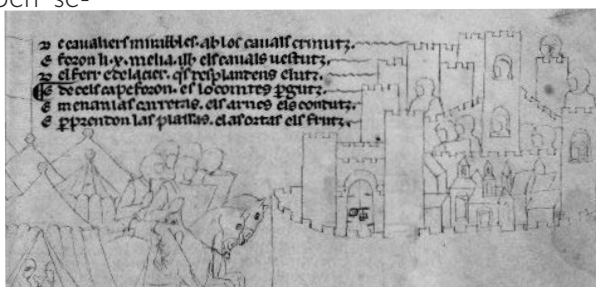 se-
D e caualiers mirables. ab los cauals crinutz.
E foron li .x. melia. els cauals uestutz.
D el ferr e delacier. qs resplantens elutz.
E de cels cape foron. es lo comtes pgutz.
E menan las carretas. els arnes els condutz.
E pprendon las plassas. e las ortas els frutz.